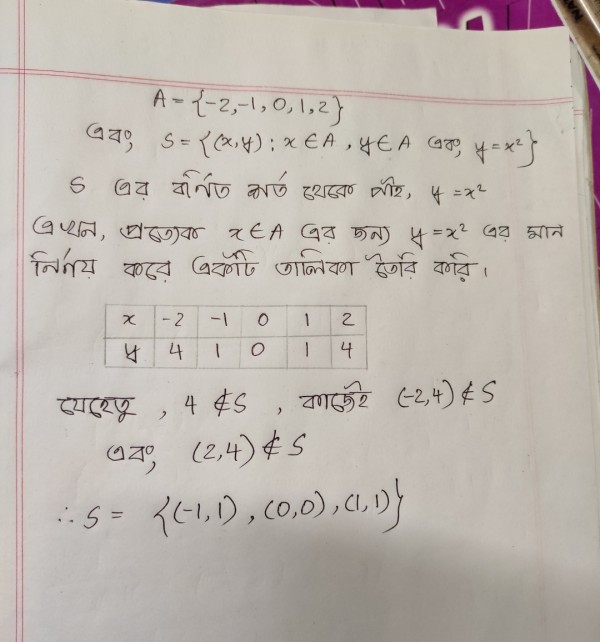 A = {-2, -1, 0, 1, 2}
এবং, S = {(x, y) : x ∈ A, y ∈ A এবং, y = x²}
S এর বর্ণিত শর্ত থেকে পাই, y = x²
এখন, প্রত্যেক x ∈ A এর জন্য y = x² এর মান
নির্ণয় করে একটি তালিকা তৈরি করি।
x -2 -1 0 1 2
y 4 1 0 1 4
যেহেতু, 4 ∉ S, কাজেই (-2,4) ∉ S
এবং, (2,4) ∉ S
∴ S = {(-1,1), (0,0), (1,1)}